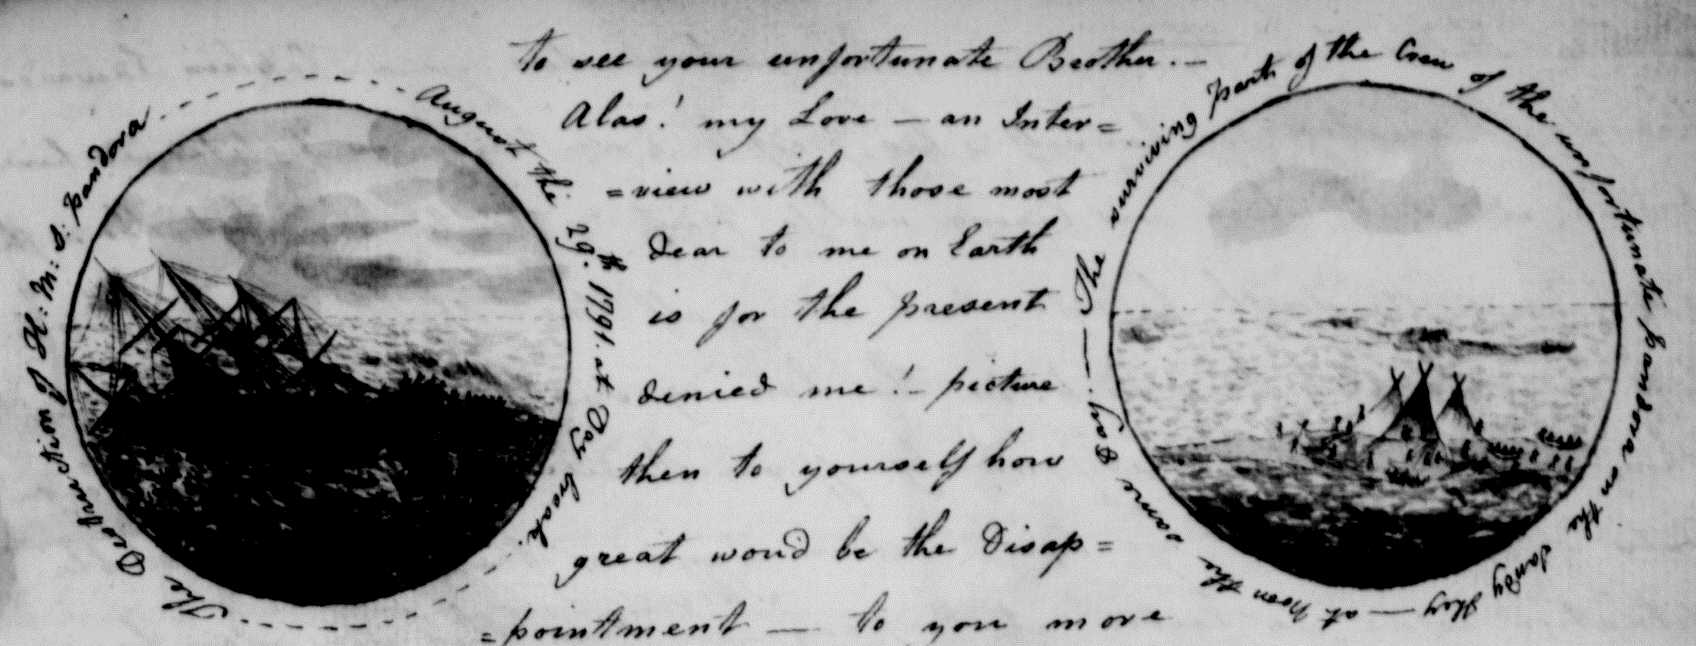 The Destruction of H: M: S: Pandora - - - August the 29.th 1791. at Day break.
to see your unfortunate Brother. —
Alas! my Love — an Inter=
=view with those most
dear to me on Earth
is for the present
denied me! — picture
then to yourself how
great wou'd be the Disap=
=pointment — to you more
The surviving part of the Crew of the unfortunate Pandora on the Sandy Key — at Noon the same Day. —